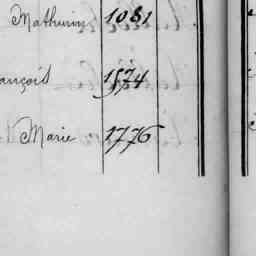 Mathurin 1081
ançois 1574
Marie 1776